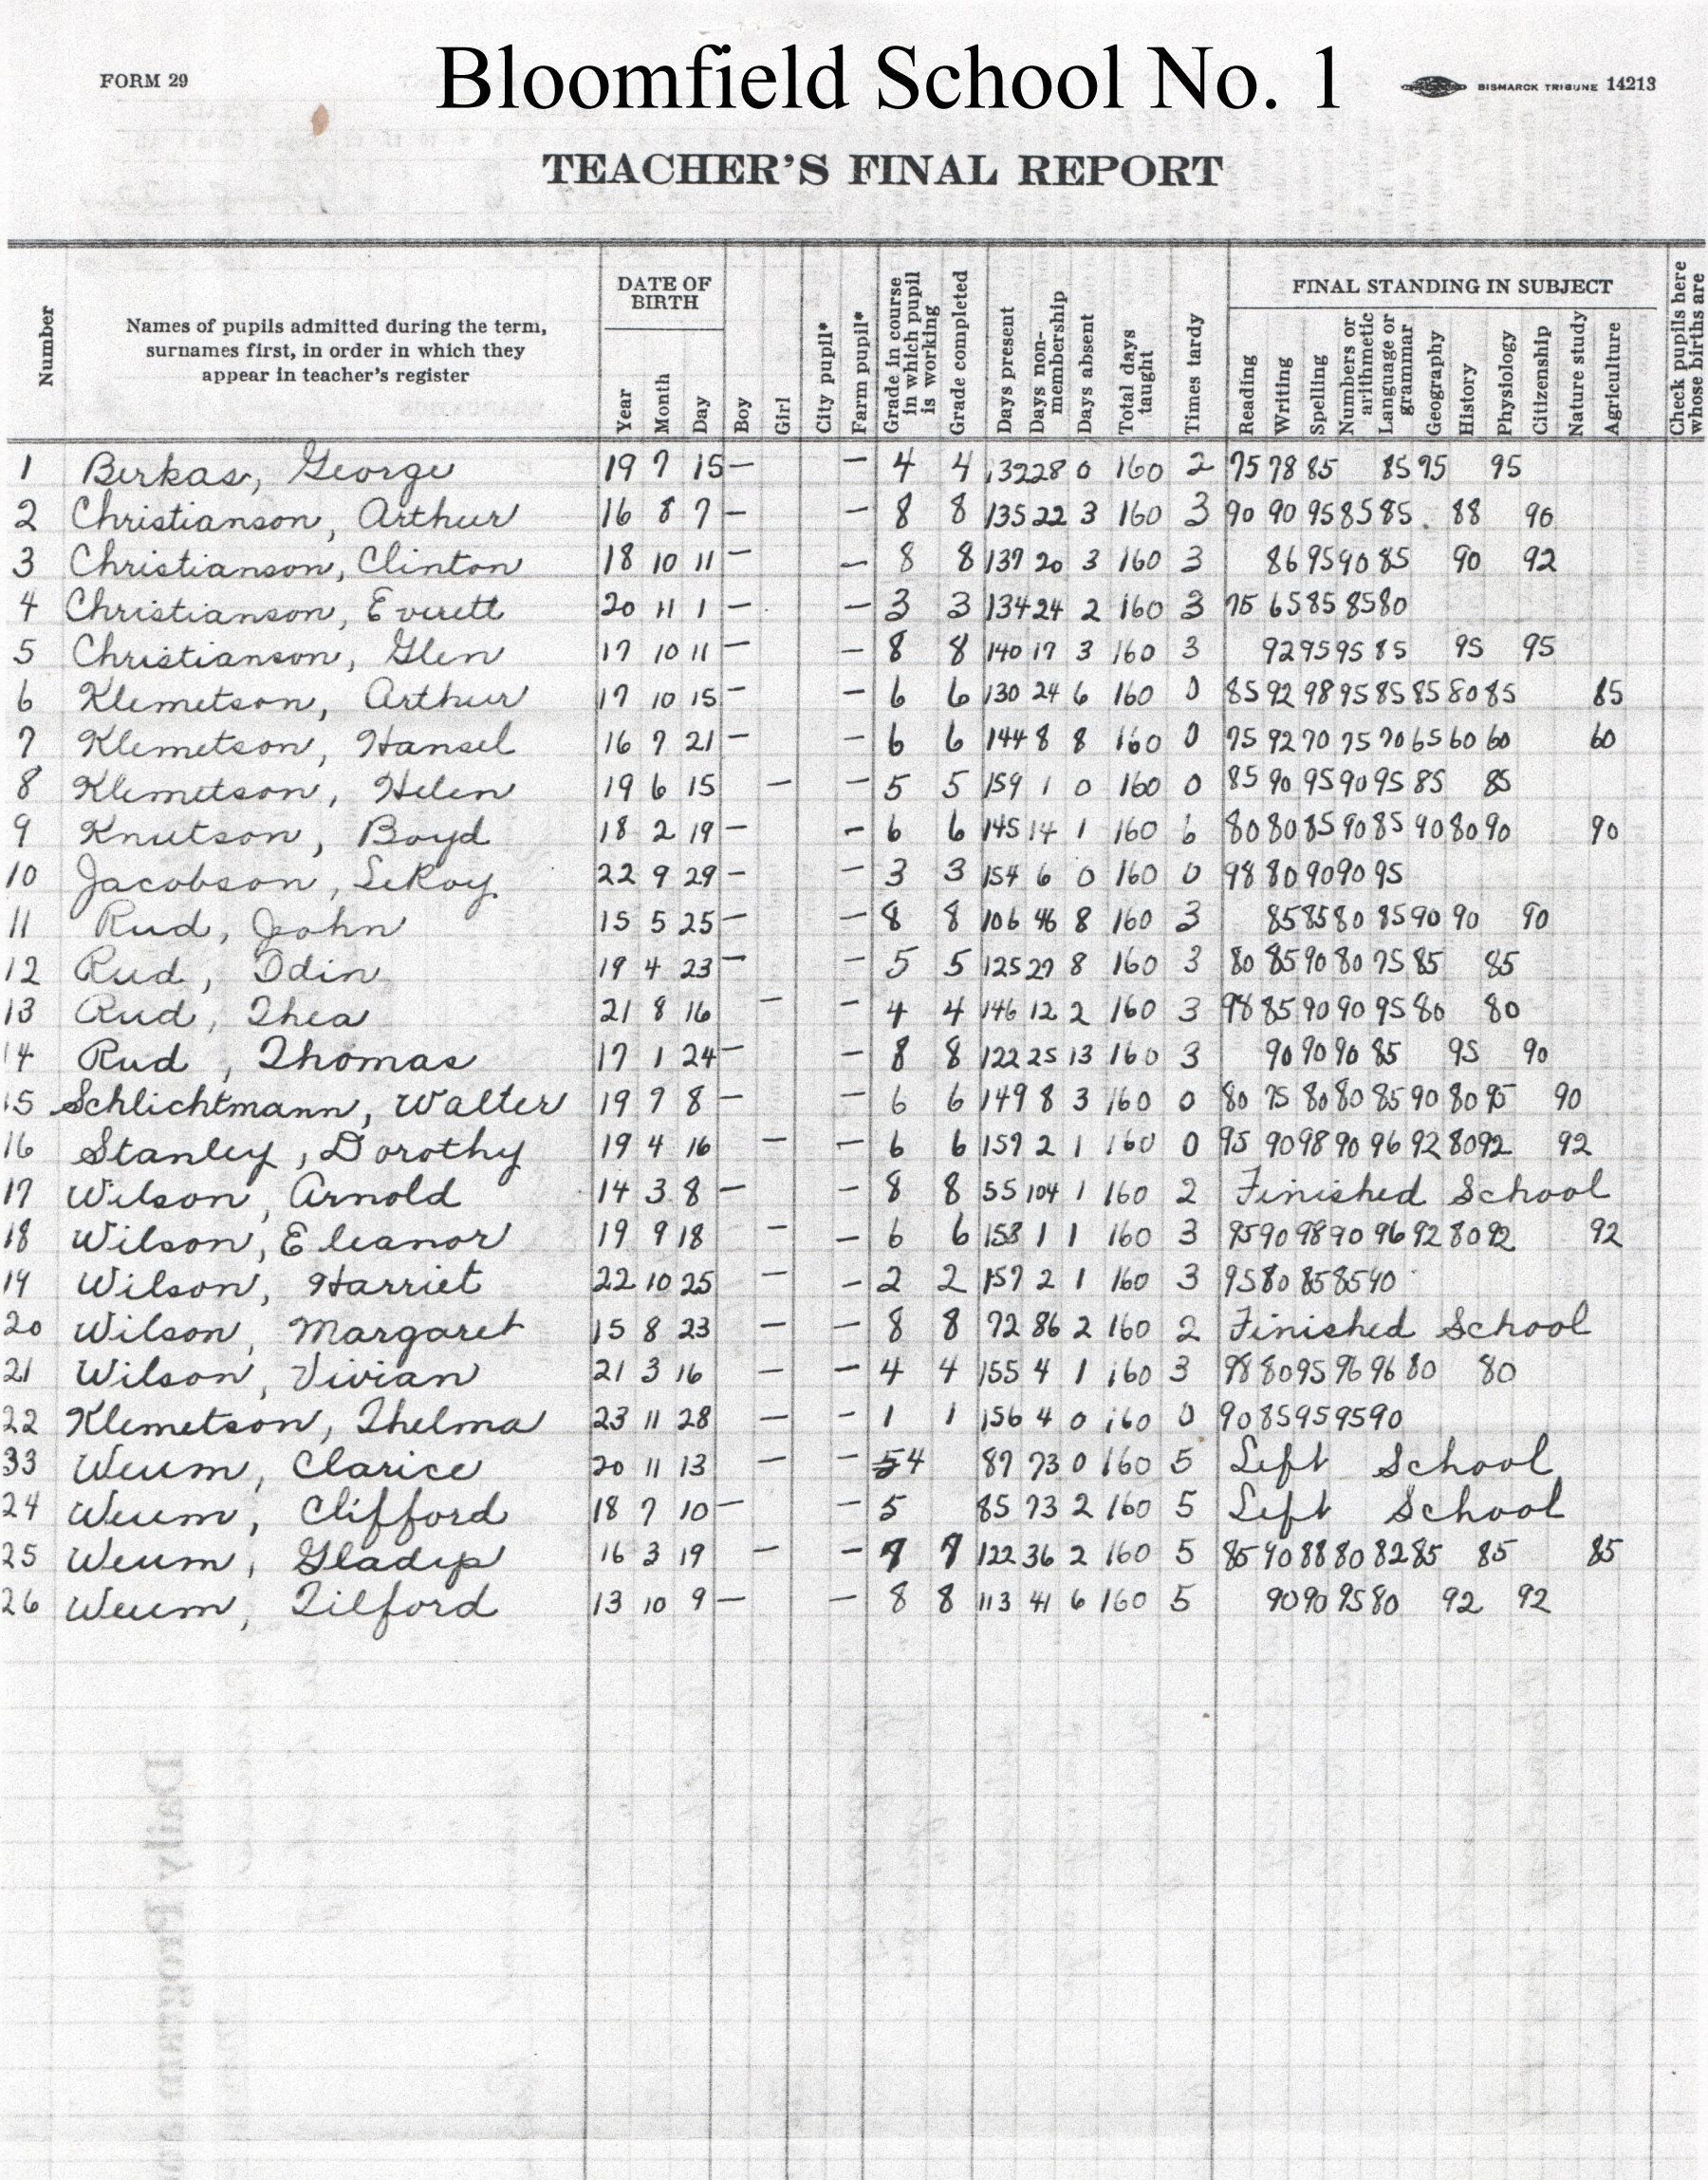 FORM 29
Bloomfield School No. 1
BISMARCK TRIBUNE 14213
TEACHER'S FINAL REPORT
Number
Names of pupils admitted during the term,
surnames first, in order in which they
appear in teacher's register
DATE OF
BIRTH
Year
Month
Day
Boy
Girl
City pupil*
Farm pupil*
Grade in course
in which pupil
is working
Grade completed
Days present
Days non-
membership
Days absent
Total days
taught
Times tardy
FINAL STANDING IN SUBJECT
Reading
Writing
Spelling
Numbers or
arithmetic
Language or
grammar
Geography
History
Physiology
Citizenship
Nature study
Agriculture
Check pupils here
whose births are
1 Berkas, George 19 7 15 — — 4 4 132 28 0 160 2 75 78 85 85 95 95
2 Christianson, Arthur 16 8 7 — — 8 8 135 22 3 160 3 90 90 95 85 85 88 90
3 Christianson, Clinton 18 10 11 — — 8 8 137 20 3 160 3 86 95 90 85 90 92
4 Christianson, Everett 20 11 1 — — 3 3 134 24 2 160 3 75 65 85 85 80
5 Christianson, Glen 17 10 11 — — 8 8 140 17 3 160 3 92 95 95 85 95 95
6 Klemetson, Arthur 17 10 15 — — 6 6 130 24 6 160 0 85 92 98 95 85 85 80 85 85
7 Klemetson, Hansel 16 7 21 — — 6 6 144 8 8 160 0 75 92 70 75 70 65 60 60 60
8 Klemetson, Helen 19 6 15 — — 5 5 159 1 0 160 0 85 90 95 90 95 85 85
9 Knutson, Boyd 18 2 19 — — 6 6 145 14 1 160 6 80 80 85 90 85 90 80 90 90
10 Jacobson, LeRoy 22 9 29 — — 3 3 154 6 0 160 0 98 80 90 90 95
11 Rud, John 15 5 25 — — 8 8 106 46 8 160 3 85 85 80 85 90 90 90
12 Rud, Odin 19 4 23 — — 5 5 125 27 8 160 3 80 85 90 80 75 85 85
13 Rud, Thea 21 8 16 — — 4 4 146 12 2 160 3 98 85 90 90 95 80 80
14 Rud, Thomas 17 1 24 — — 8 8 122 25 13 160 3 90 90 90 85 95 90
15 Schlichtmann, Walter 19 7 8 — — 6 6 149 8 3 160 0 80 75 80 80 85 90 80 95 90
16 Stanley, Dorothy 19 4 16 — — 6 6 157 2 1 160 0 95 90 98 90 96 92 80 92 92
17 Wilson, Arnold 14 3 8 — — 8 8 55 104 1 160 2 Finished School
18 Wilson, Eleanor 19 9 18 — — 6 6 158 1 1 160 3 95 90 98 90 96 92 80 92 92
19 Wilson, Harriet 22 10 25 — — 2 2 157 2 1 160 3 95 80 85 85 90
20 Wilson, Margaret 15 8 23 — — 8 8 72 86 2 160 2 Finished School
21 Wilson, Vivian 21 3 16 — — 4 4 155 4 1 160 3 98 80 95 96 96 80 80
22 Klemetson, Thelma 23 11 28 — — 1 1 156 4 0 160 0 90 85 95 95 90
33 Weum, Clarice 20 11 13 — — 5 4 87 73 0 160 5 Left School
24 Weum, Clifford 18 7 10 — — 5 85 73 2 160 5 Left School
25 Weum, Gladys 16 3 19 — — 7 7 122 36 2 160 5 85 90 88 80 82 85 85 85
26 Weum, Tilford 13 10 9 — — 8 8 113 41 6 160 5 90 90 95 80 92 92